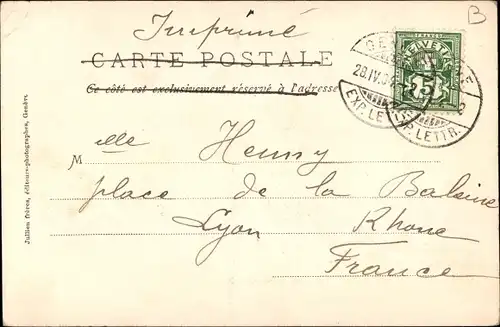 B
Imprimé
CARTE POSTALE
Ce côté est exclusivement réservé à l'adresse
HELVETIA
FRANCO
5
EXP. LETTR.
EXP. LETTR.
Melle Henny
place de la Baleine
Lyon Rhone
France
Jullien frères, éditeurs-photographes, Genève.